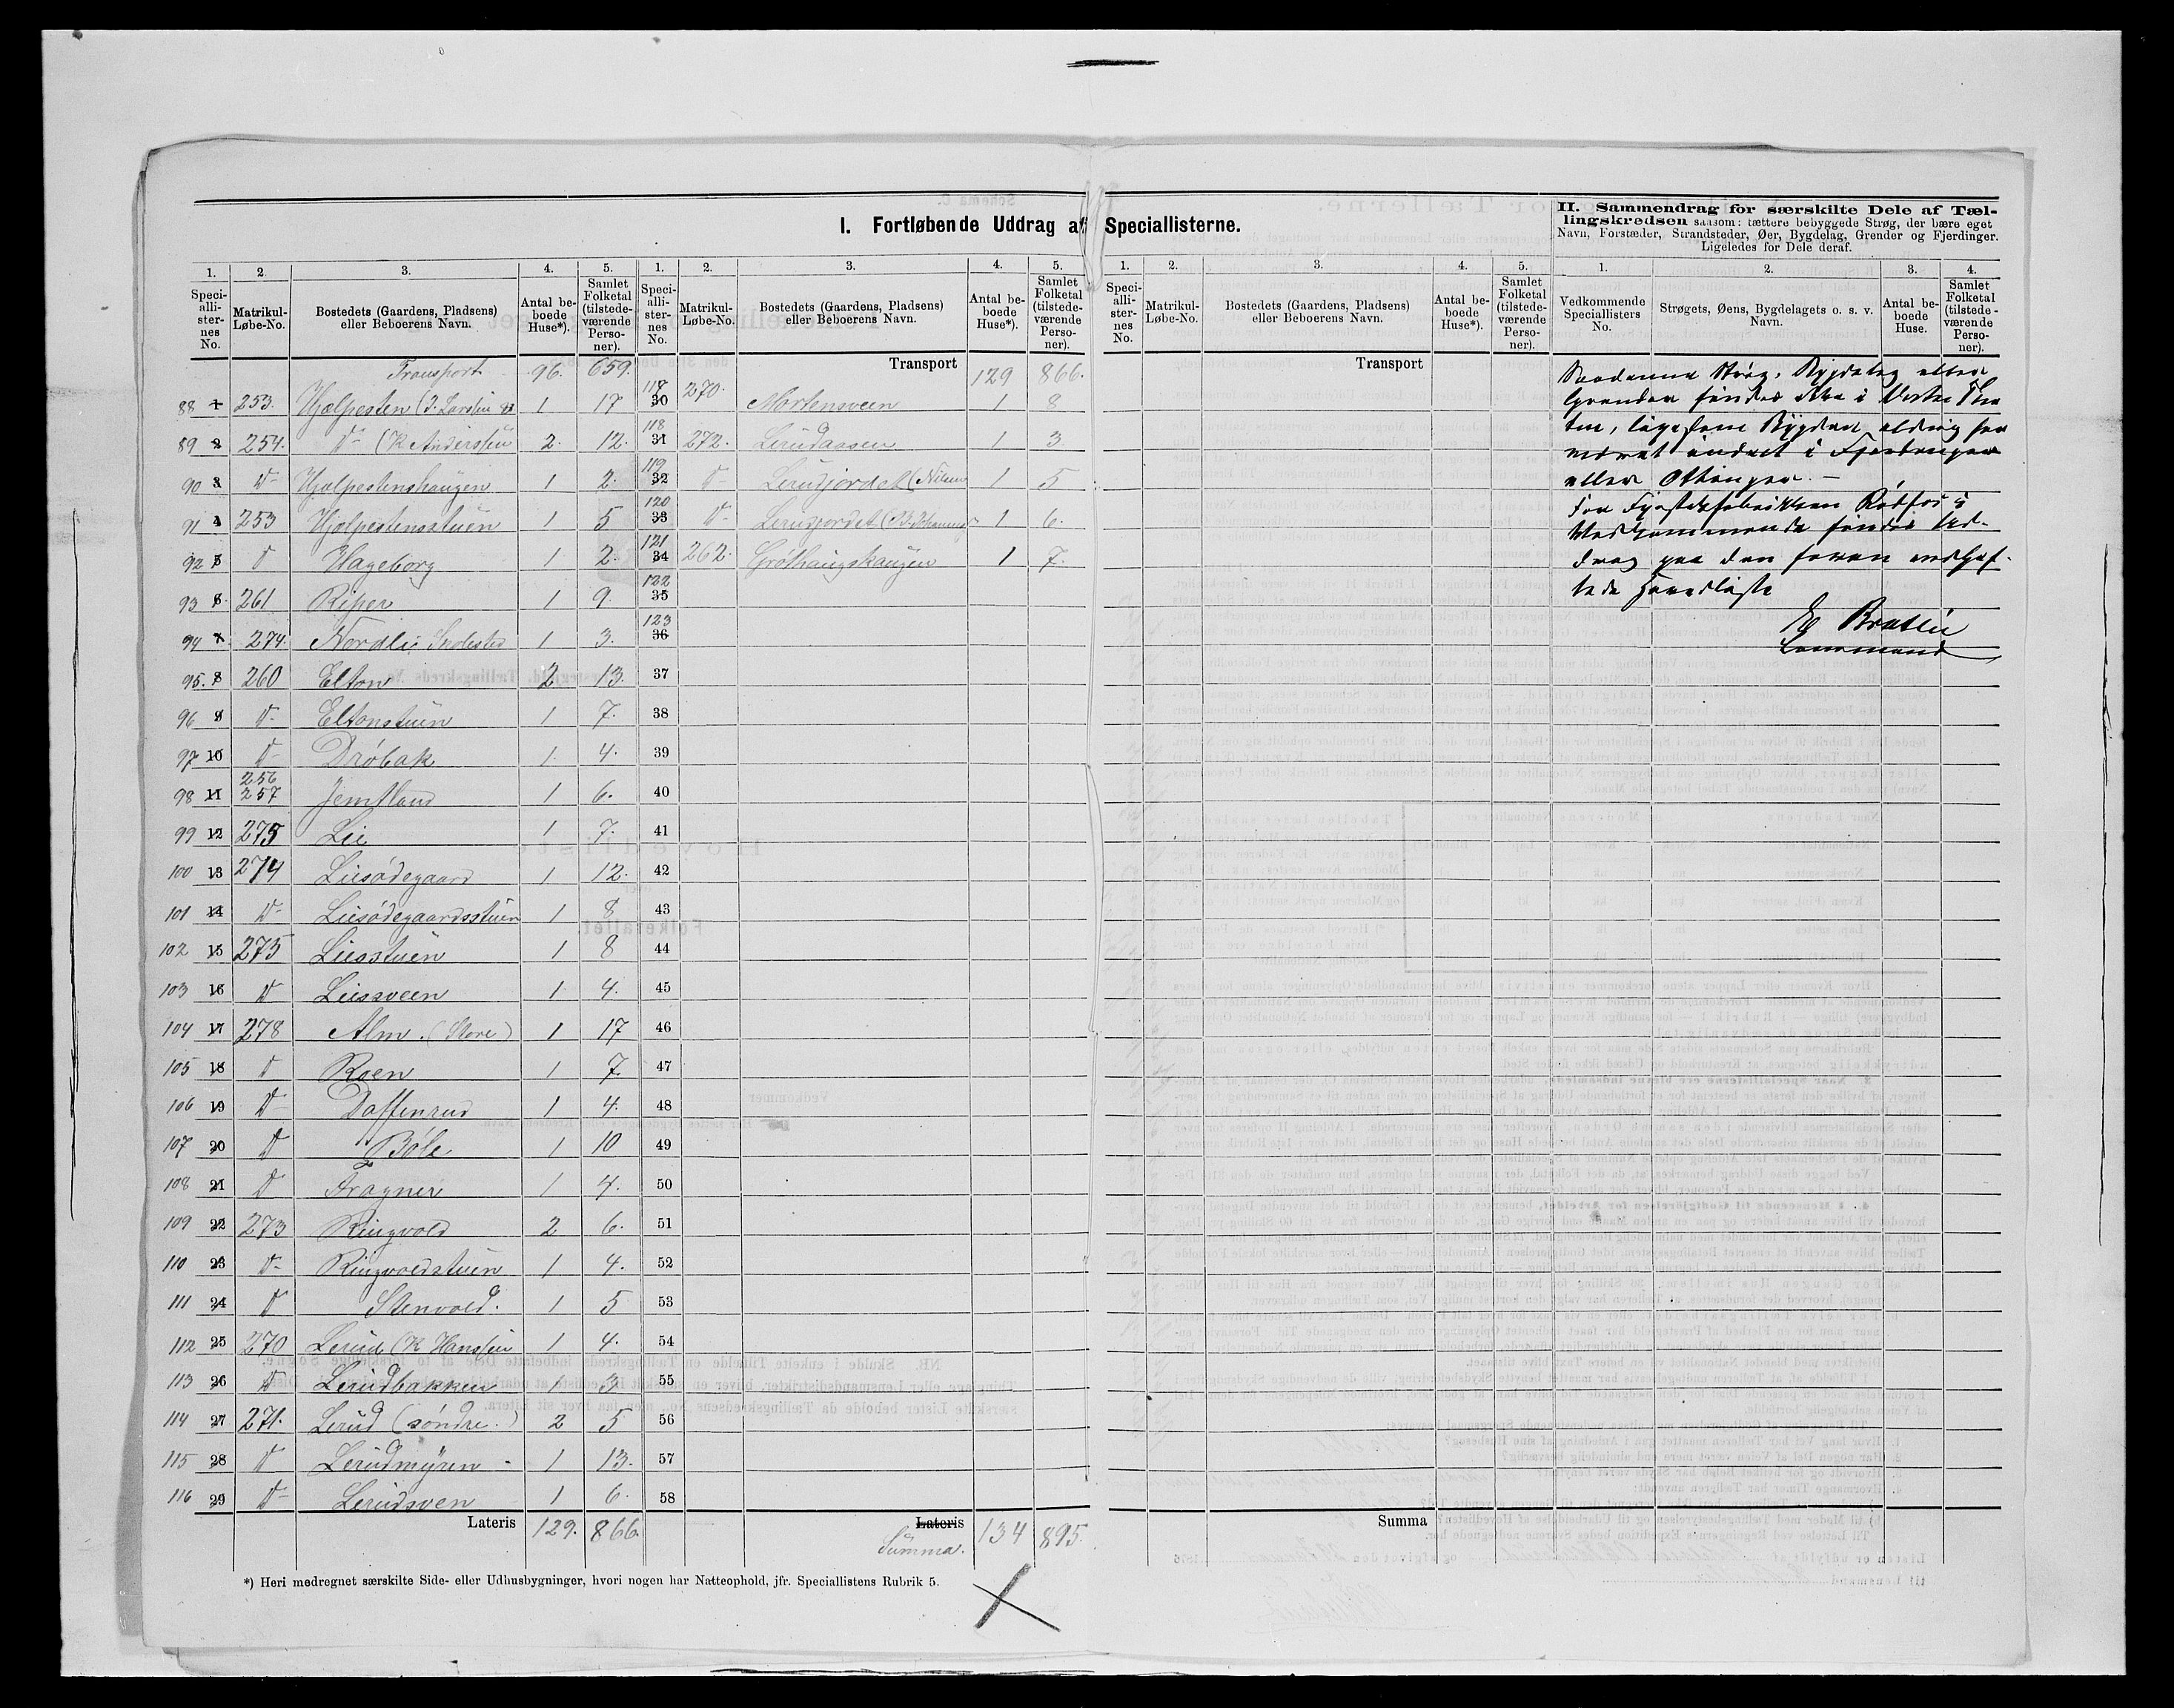 I. Fortløbende Uddrag af Speciallisterne.
II. Sammendrag for særskilte Dele af Tæl-
lingskredsen saasom: tættere bebyggede Strøg, der bære eget
Navn, Forstæder, Strandsteder, Øer, Bygdelag, Grender og Fjerdinger.
Ligeledes for Dele deraf.
1. 2. 3. 4. 5. 1. 2. 3. 4. 5. 1. 2. 3. 4. 5. 1. 2. 3. 4.
Speci-allister-nes No. Matrikul-Løbe-No. Bostedets (Gaardens, Pladsens) eller Beboerens Navn. Antal be-boede Huse*). Samlet Folketal (tilstede-værende Perso-ner).
Speci-allister-nes No. Matrikul-Løbe-No. Bostedets (Gaardens, Pladsens) eller Beboerens Navn. Antal be-boede Huse*). Samlet Folketal (tilstede-værende Perso-ner).
Speci-allister-nes No. Matrikul-Løbe-No. Bostedets (Gaardens, Pladsens) eller Beboerens Navn. Antal be-boede Huse*). Samlet Folketal (tilstede-værende Perso-ner).
Vedkommende Speciallisters No. Strøgets, Øens, Bygdelagets o. s. v. Navn. Antal be-boede Huse. Samlet Folketal (tilstede-værende Perso-ner).
Transport 96. 659.
88 1 253. Hjælpesten (J. Larsen 1 17
89 2 254. D- (K Anderssen 2. 12.
90 3 D- Hjælpestenshaugen 1 2.
91 4 253 Hjælpestensstuen 1 5
92 5 D Hageborg 1 2.
93 6 261 Riper 1 9.
94 7 274. Nordlie 1 3.
95. 8 260 Elton 2 13.
96 9 D- Eltonstuen 1 7.
97 10 D- Drøbak 1. 4.
98 11 256 257 Jemtland 1 6.
99 12 275 Lie 1 7.
100 13 274 Liesødegaard 1 12.
101 14 D- Liesødegaardsstuen 1 8
102 15 275 Liesstuen 1 8
103 16 D Liessveen 1 4.
104 17 278 Alm. (Store) 1 17
105 18 D Roen 1 7.
106 19 D- Daffenrud 1 4.
107 20 D Bøle 1 10
108 21 D Frogner 1 4.
109 22 273 Ringvold 2 6.
110 23 D- Ringvoldstuen 1 4.
111 24 D Stenvold. 1 5
112 25 270 Lerud (K Hanssen 1 4.
113 26 D Lerudbakken 1 3
114 27 271. Lerud (søndre.) 2 5
115 28 D Lerudmyren - 1 13.
116 29 D- Lerudsven 1 6.
Lateris 129. 866.
Transport 129 866.
117 30 270. Mortensveen 1 8
118 31 272. Lerudaasen 1 3
119 32 D- Lerudjordet (Nilsen 1 5
120 33 D- Lerudjordet 1 6.
121 34 262. Grøthaugshaugen 1 7.
122 35
123 36
37
38
39
40
41
42
43
44
45
46
47
48
49
50
51
52
53
54
55
56
57
58
Lateris
Summa. 134 895.
Transport
Summa
Saadanne Strøg, Bygdelag eller
Grender findes ikke i
ten, ligesom Bygden aldrig har
været inddelt i Fjerdinger
eller Ottinger. -
For
Vedkommende findes Ud-
drag paa den foran
tede Hovedliste
Lensmand
*) Heri medregnet særskilte Side- eller Udhusbygninger, hvori nogen har Natteophold, jfr. Speciallistens Rubrik 5.